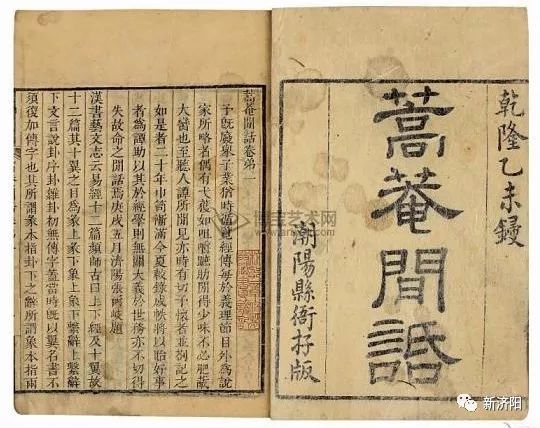 乾隆乙未鐫
蒿菴閒話
潮陽縣衙存版
蒿菴閒話卷第一
予既廢舉子業猶時循覽經傳每於義理節目外為說
家所略者偶有弋獲如咀嚼聽助聞得少味不必肥胾
大臠也至聽人譚所聞見亦時有切予懷者並劄記之
如是者二十年巾笥漸滿今夏較錄成帙將以貽好事
者為譚助以其於經學則無關大義於世務亦不切得
失故命之閒話焉庚戌五月濟陽張爾岐題
漢書藝文志云易經十二篇顏師古曰上下經及十翼故
十二篇其十翼之目為彖上彖下象上象下繫辭上繫辭
下文言說卦序卦雜卦初無傳字蓋當時既以翼名書不
須復加傳字也其所謂彖本指卦下之辭所謂象本指兩
博宝艺术网
新济阳